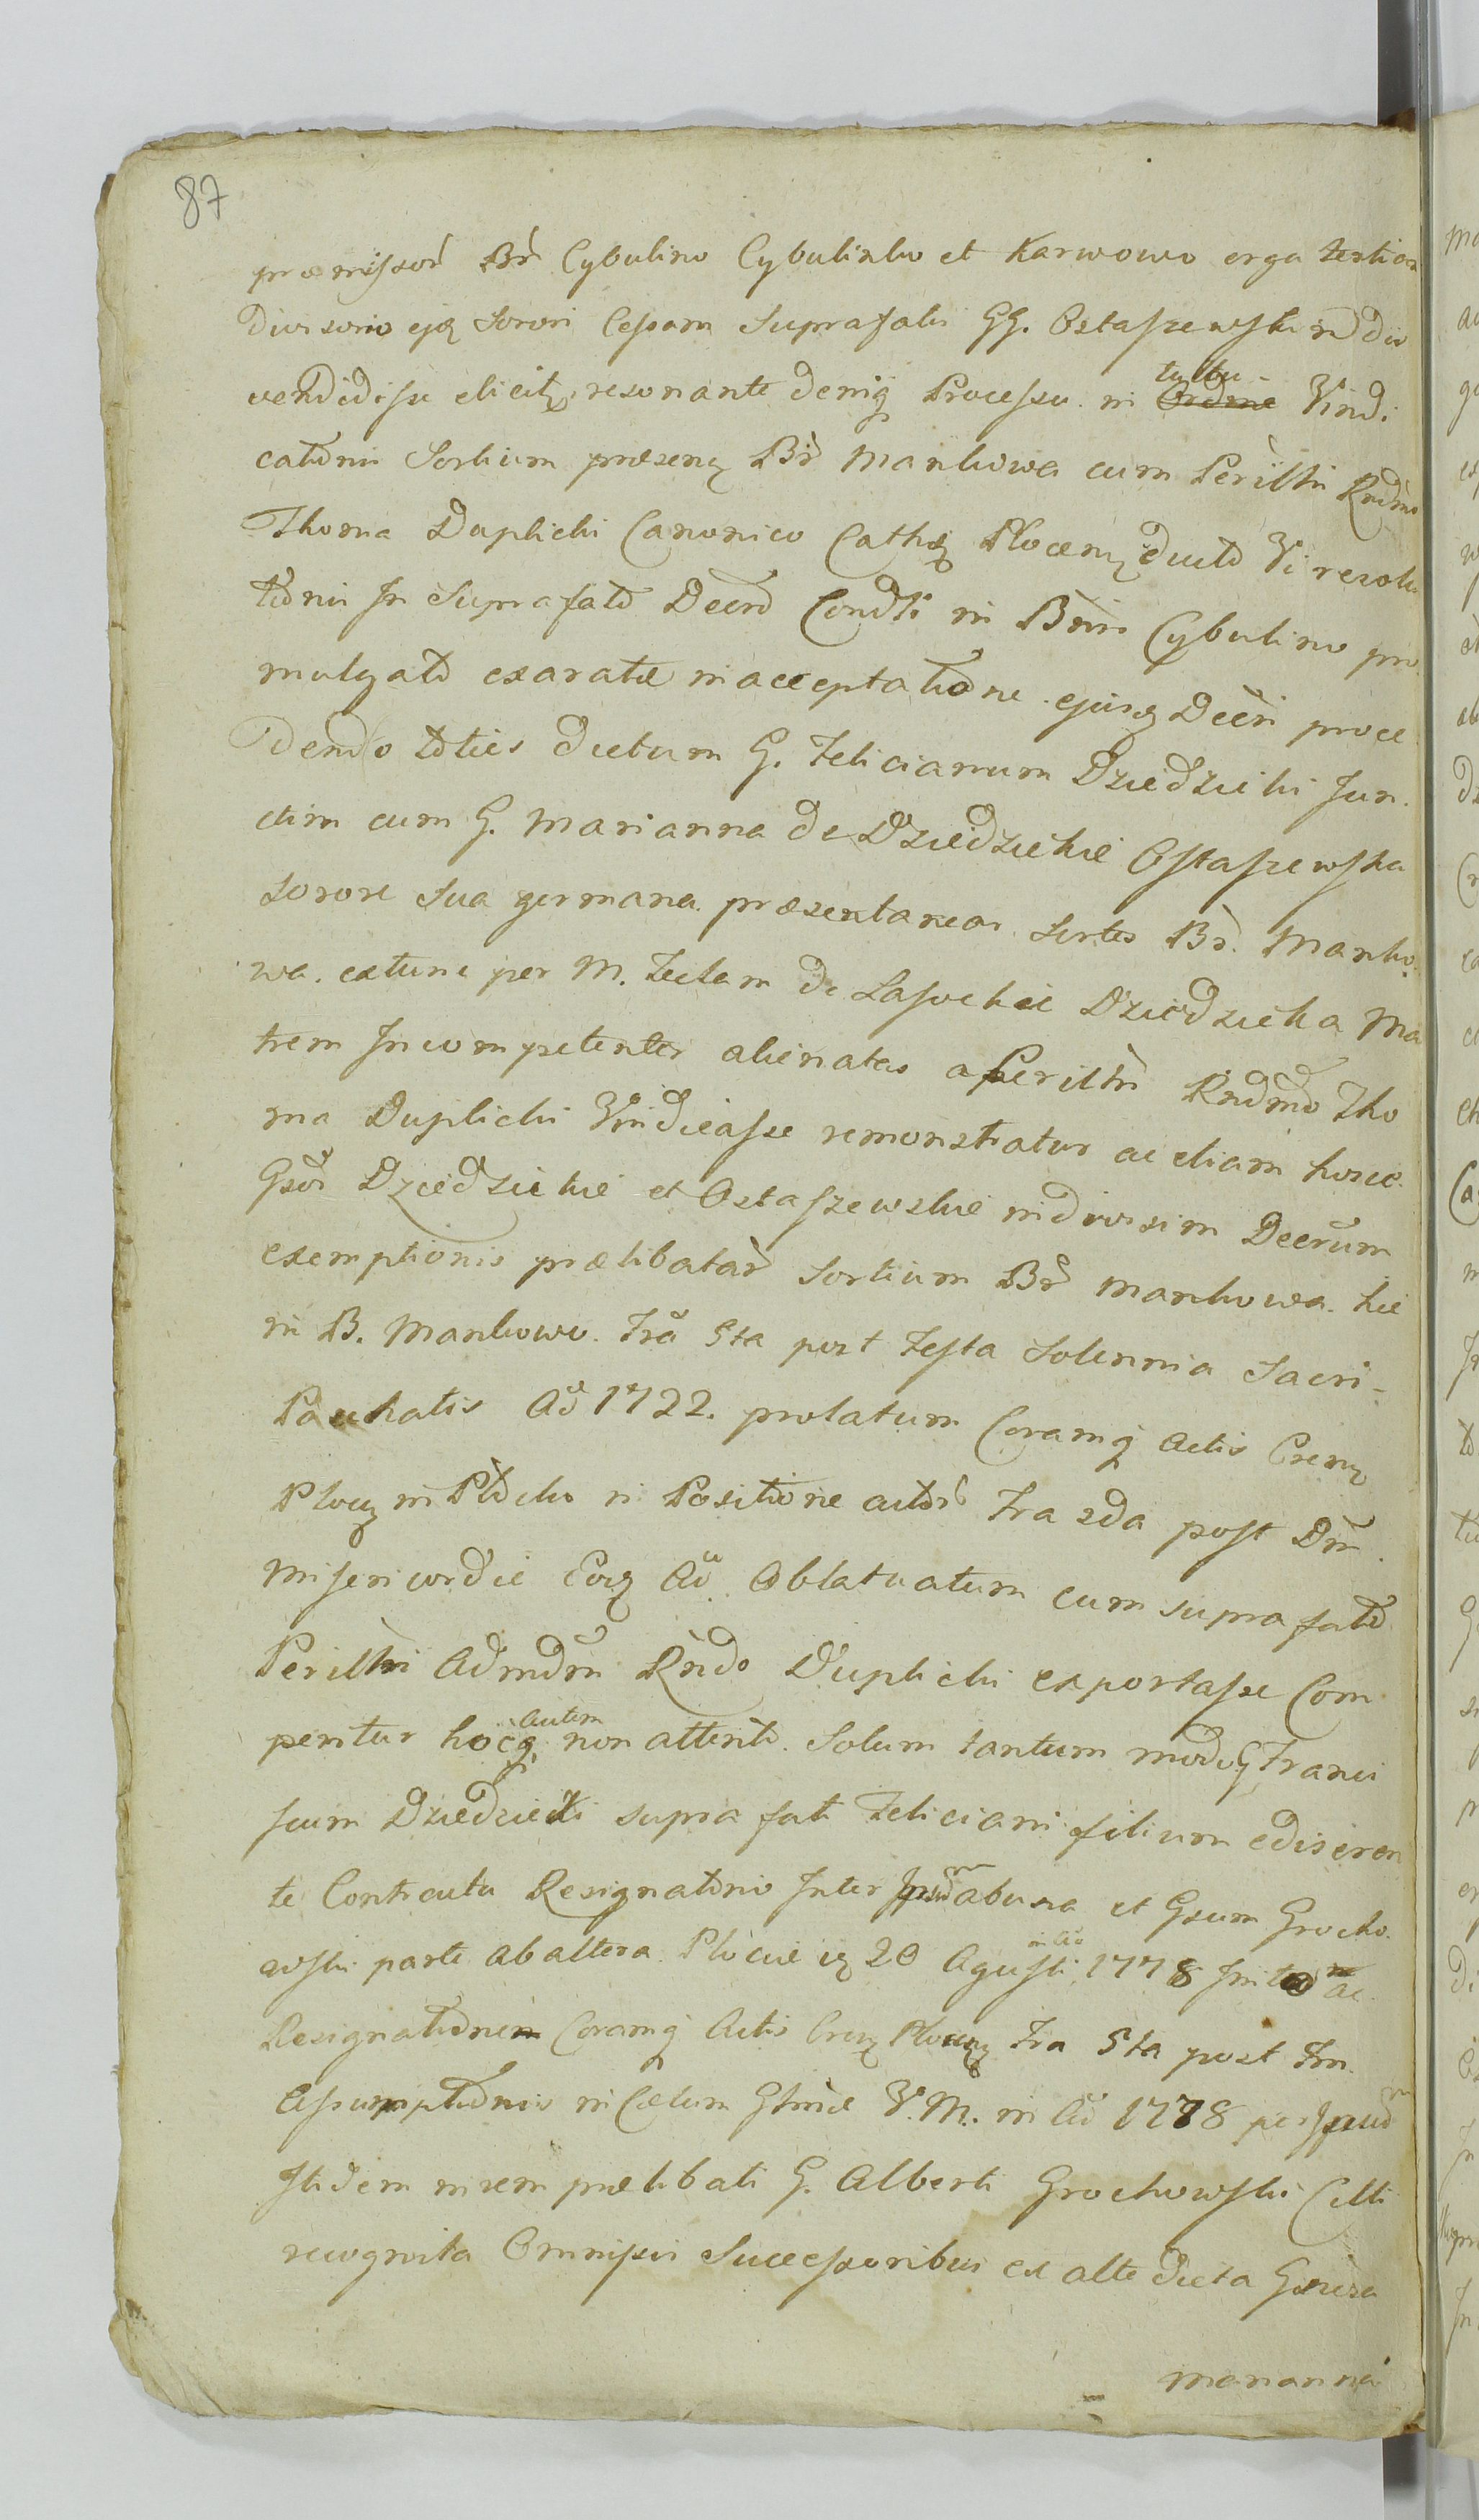 87
præmissor Br Cybulino Cybulinko et Karwowo erga tertian
divisorio ejq Sorori Cessam Suprafatis GG. Ostaszewskim div
vendidisse elicitq, resonante deniq Processu in tultu Ordine Vindi
catõnis Sortium præsenq Br Mankowa cum Perillri Rndmo
Thoma Duplicki Canonico Cathq Plocenq ductõ Vi resolu
tiõnis In Suprafatõ Decrõ Condti in Bnis Cybulino pro
mulgatõ exaratæ in acceptatiõne ejusq Decri proce
dendo toties dictum G. Felicianum Dziedzicki Jun
ctim cum G. Marianna de Dziedzickie Ostaszewska
Sorore Sua germana præsentaneas Sortes Br. Manko
wa. extunc per M. Teclam de Lasockie Dziedzicka Ma
trem Incompetenter alienatas a Perillri Rndmo Tho
ma Duplicki Vindicasse remonstratur ac etiam hosce
Gsõr Dziedzickie et Ostaszewskie indivisim Decrum
exemptionis prælibatar Sortium Br Mankowa. hic
in B. Mankowo. Fra 5ta post Festa Solennia Sacri
Paschatis Aõ 1722. prolatum Coramq Actis Crenq
Plocq in Plocko in Positiõne actõr Fra 2da post Dm
Misericordie Eoq Aõ Oblatuatum cum suprafatõ
Perillri Admdm Rndo Duplicki exportasse Com
peritur hocq autem non attento. Solum tantum modo G Franci
scum Dziedzicki suprafati Feliciani filium edisseren
te Contractu Resignatõnis Inter Ipsum ab una et Gsum Grocho
wski parte ab altera Plocie iq 20 Agusti in Aõ 1778 Inito ac
Resignatiõnem Coramq Actis Crenq Plocenq Fra 5ta post Fm
Assumptiõnis in Cælum Gloræ V. M. in Aõ 1778 per Ipsum
Itidem in rem prælibati G. Alberti Grochowski Celti
recognita Omnipsis Successoribus ex alte dicta Gnersa
Marianna